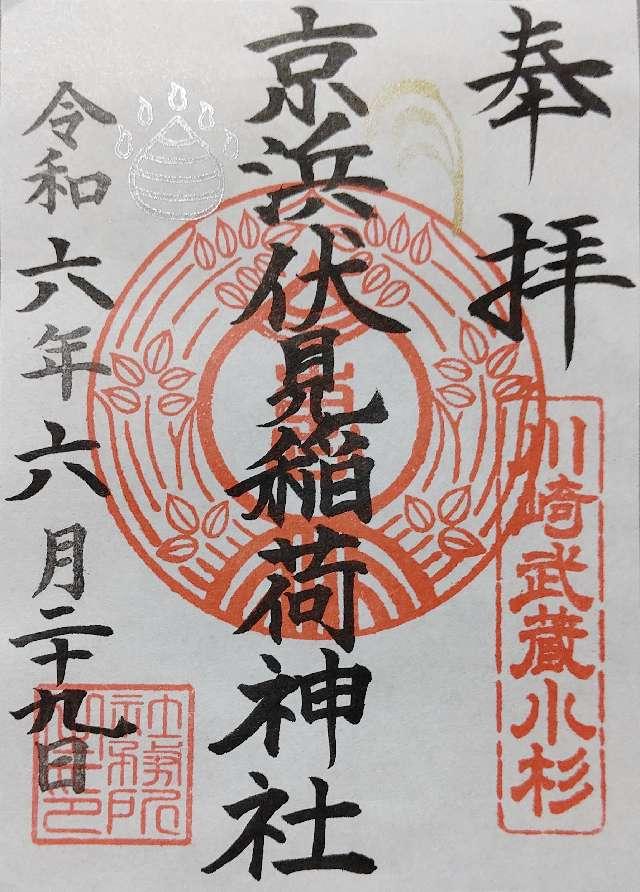 奉拝
川崎武蔵小杉
京浜伏見稲荷神社
令和六年六月二十九日
社務所